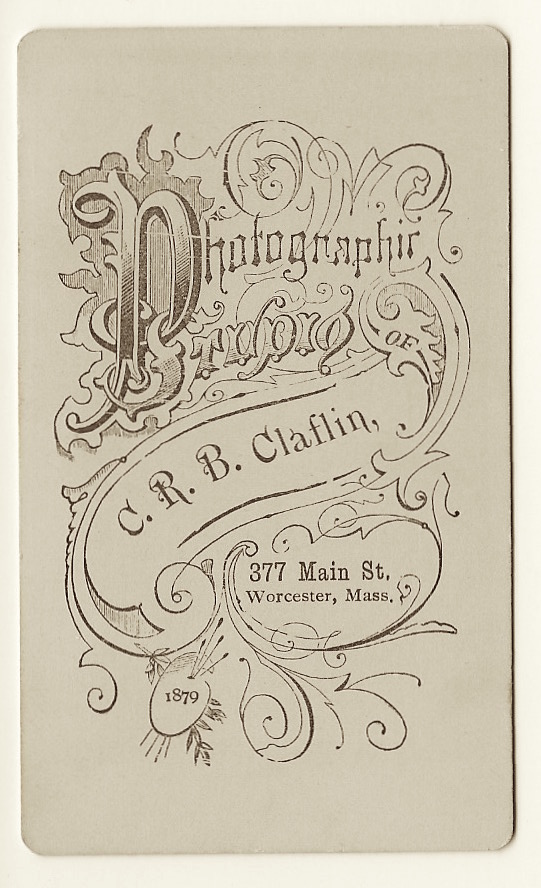 Photographic
Studio
OF
C. R. B. Claflin,
377 Main St.
Worcester, Mass.
1879